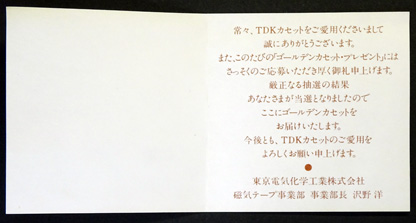 常々、TDKカセットをご愛用くださいまして
誠にありがとうございます。
また、このたびの「ゴールデンカセット・プレゼント」には
さっそくのご応募いただき厚く御礼申上げます。
厳正なる抽選の結果
あなたさまが当選となりましたので
ここにゴールデンカセットを
お届けいたします。
今後とも、TDKカセットのご愛用を
よろしくお願い申上げます。
東京電気化学工業株式会社
磁気テープ事業部 事業部長 沢野 洋